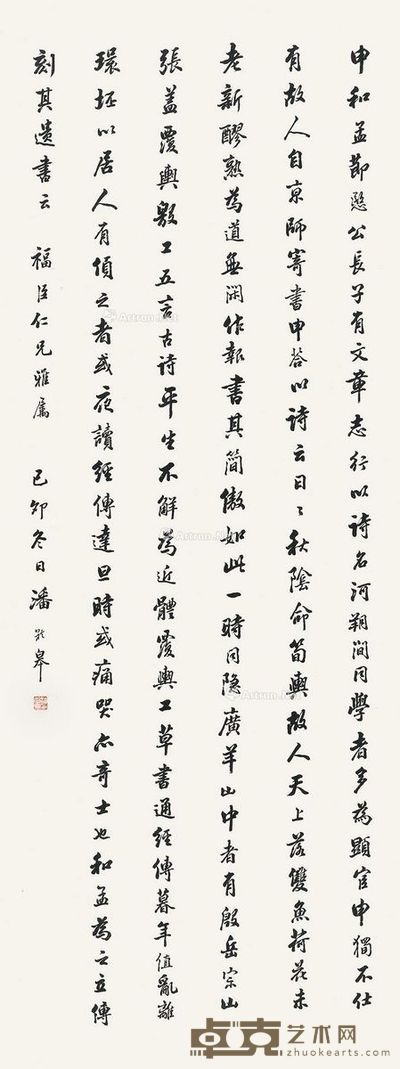 申和孟節愍公長子有文章志行以詩名河朔間同學者多為顯宦申獨不仕
有故人自京師寄書申答以詩云日日秋陰命筍輿故人天上落雙魚荷花未
老新醪熟為道無閑作報書其簡傲如此一時同隱廣羊山中者有殷岳宗山
張蓋覆輿嶽工五言古詩平生不解為近體覆輿工草書通經傳暮年值亂離
環坯以居人有偵之者或夜讀經傳達旦時或痛哭亦奇士也和孟為之立傳
刻其遺書云 福臣仁兄雅屬 己卯冬日潘齡皋
Artron.Net
卓克艺术网
zhuokearts.com